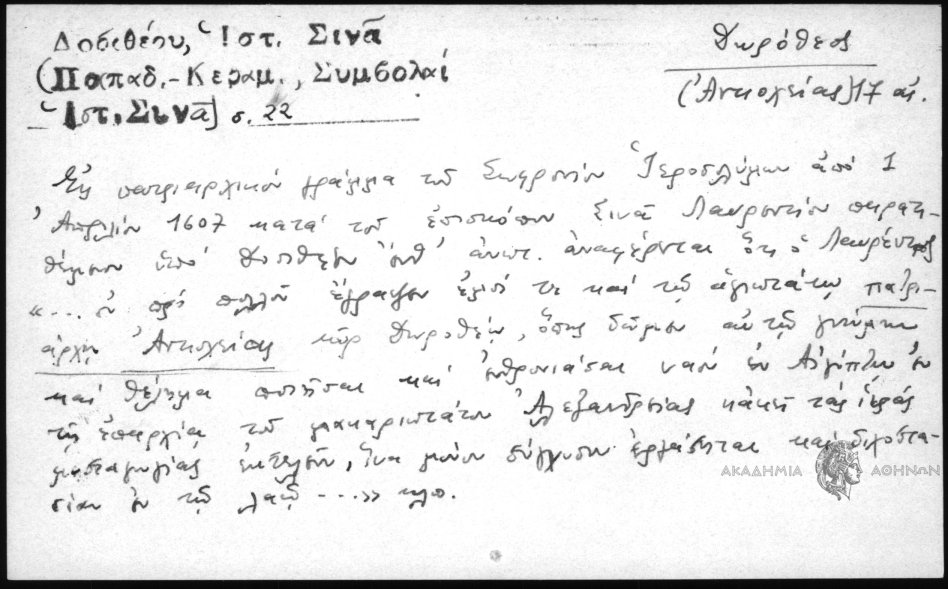 Δοσιθέου, Ἱστ. Σινᾶ
(Παπαδ.-Κεραμ., Συμβολαί
Ἱστ. Σινᾶ) σ. 22
Δωρόθεος
(Ἀντιοχείας) 17 αἰ.
Εἰς πατριαρχικόν γράμμα τοῦ Σωφρονίου Ἱεροσολύμων ἀπό 1
Ἀπριλίου 1607 κατά τοῦ ἐπισκόπου Σινᾶ Λαυρεντίου παρατι-
θέμενον ὑπό Δοσιθέου ἀνωτ. ἀναφέρεται ὅτι ὁ Λαυρέντιος
«... πρό πολλοῦ ἔγραψεν ἐμοί τε καί τῷ ἁγιωτάτῳ πατρι-
άρχῃ Ἀντιοχείας κύρ Δωροθέῳ, ὅπως δῶμεν αὐτῷ γνώμην
καί θέλημα ποιῆσαι καί ἐνθρονιάσαι ναόν ἐν Αἰγύπτῳ ἐν
τῇ ἐπαρχίᾳ τοῦ μακαριωτάτου Ἀλεξανδρείας κἀκεῖ τάς ἱεράς
μυσταγωγίας ἐκτελεῖν, ἵνα μόνον σύγχυσιν ἐργάσηται καί διχοστα-
σίαν ἐν τῷ λαῷ ....» κλπ.
ΑΚΑΔΗΜΙΑ ΑΘΗΝΩΝ